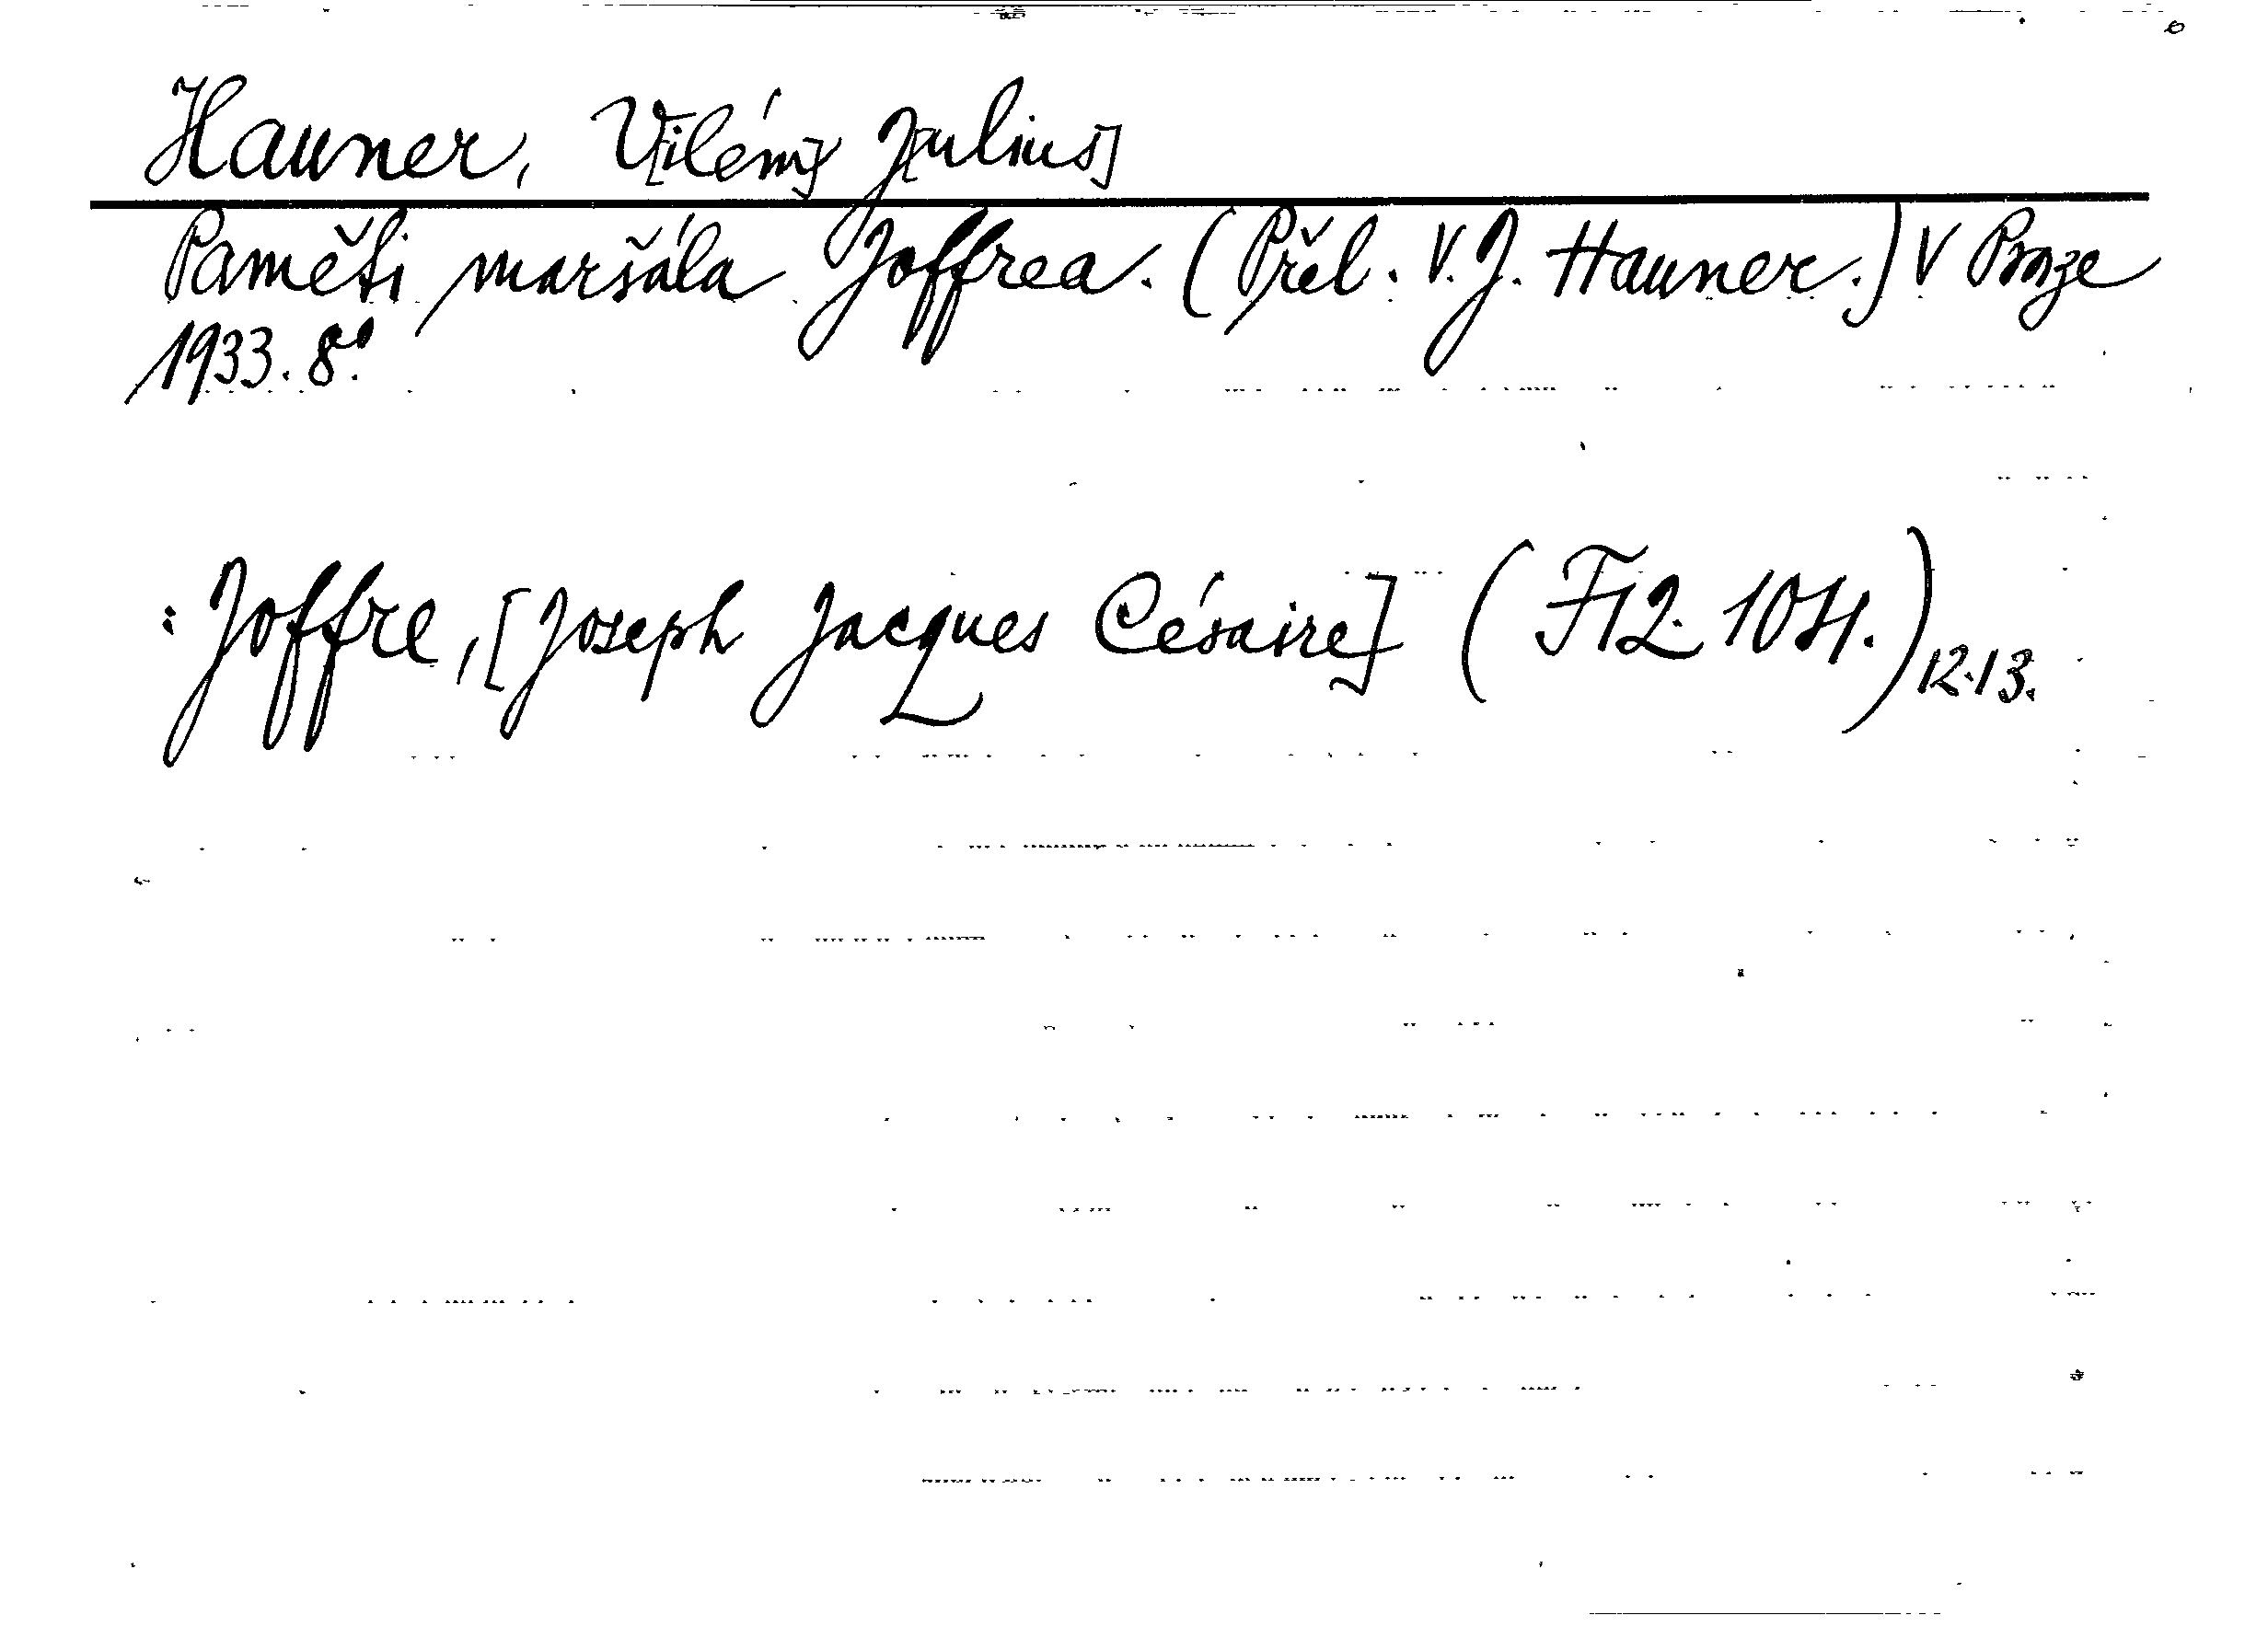 Hauner, V[ilém] J[ulius]
Paměti maršála Joffrea. (Přel. V. J. Hauner.) V Praze
1933. 8°.
: Joffre, [Joseph Jacques Césaire] (F12. 104.) 12.13.